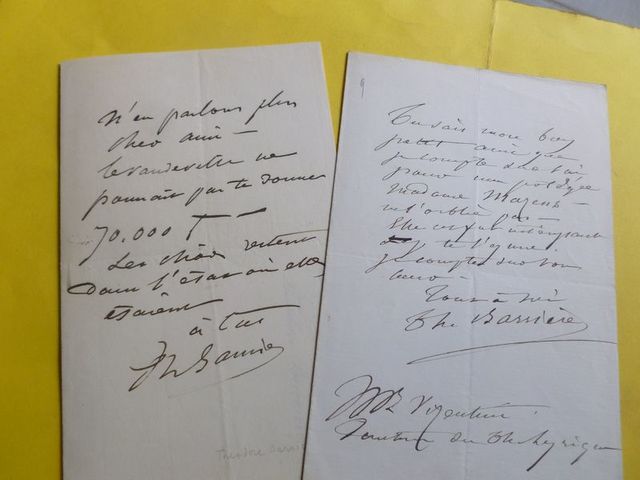 N'en parlons plus
cher ami —
le vaudeville ne
pourrait pas te donner
70.000 F —
Les choses restent
dans l'état où elles
étaient
à toi
Th Barrière
Théodore Barri
9
Tu sais mon bon
petit ami que
je compte sur toi
pour ma protégée
Madame
ne l'oublie pas —
Elle est fort
je compte sur ton
Tout à toi
Th. Barrière
Mr Vizentini
Directeur du Th. Lyrique